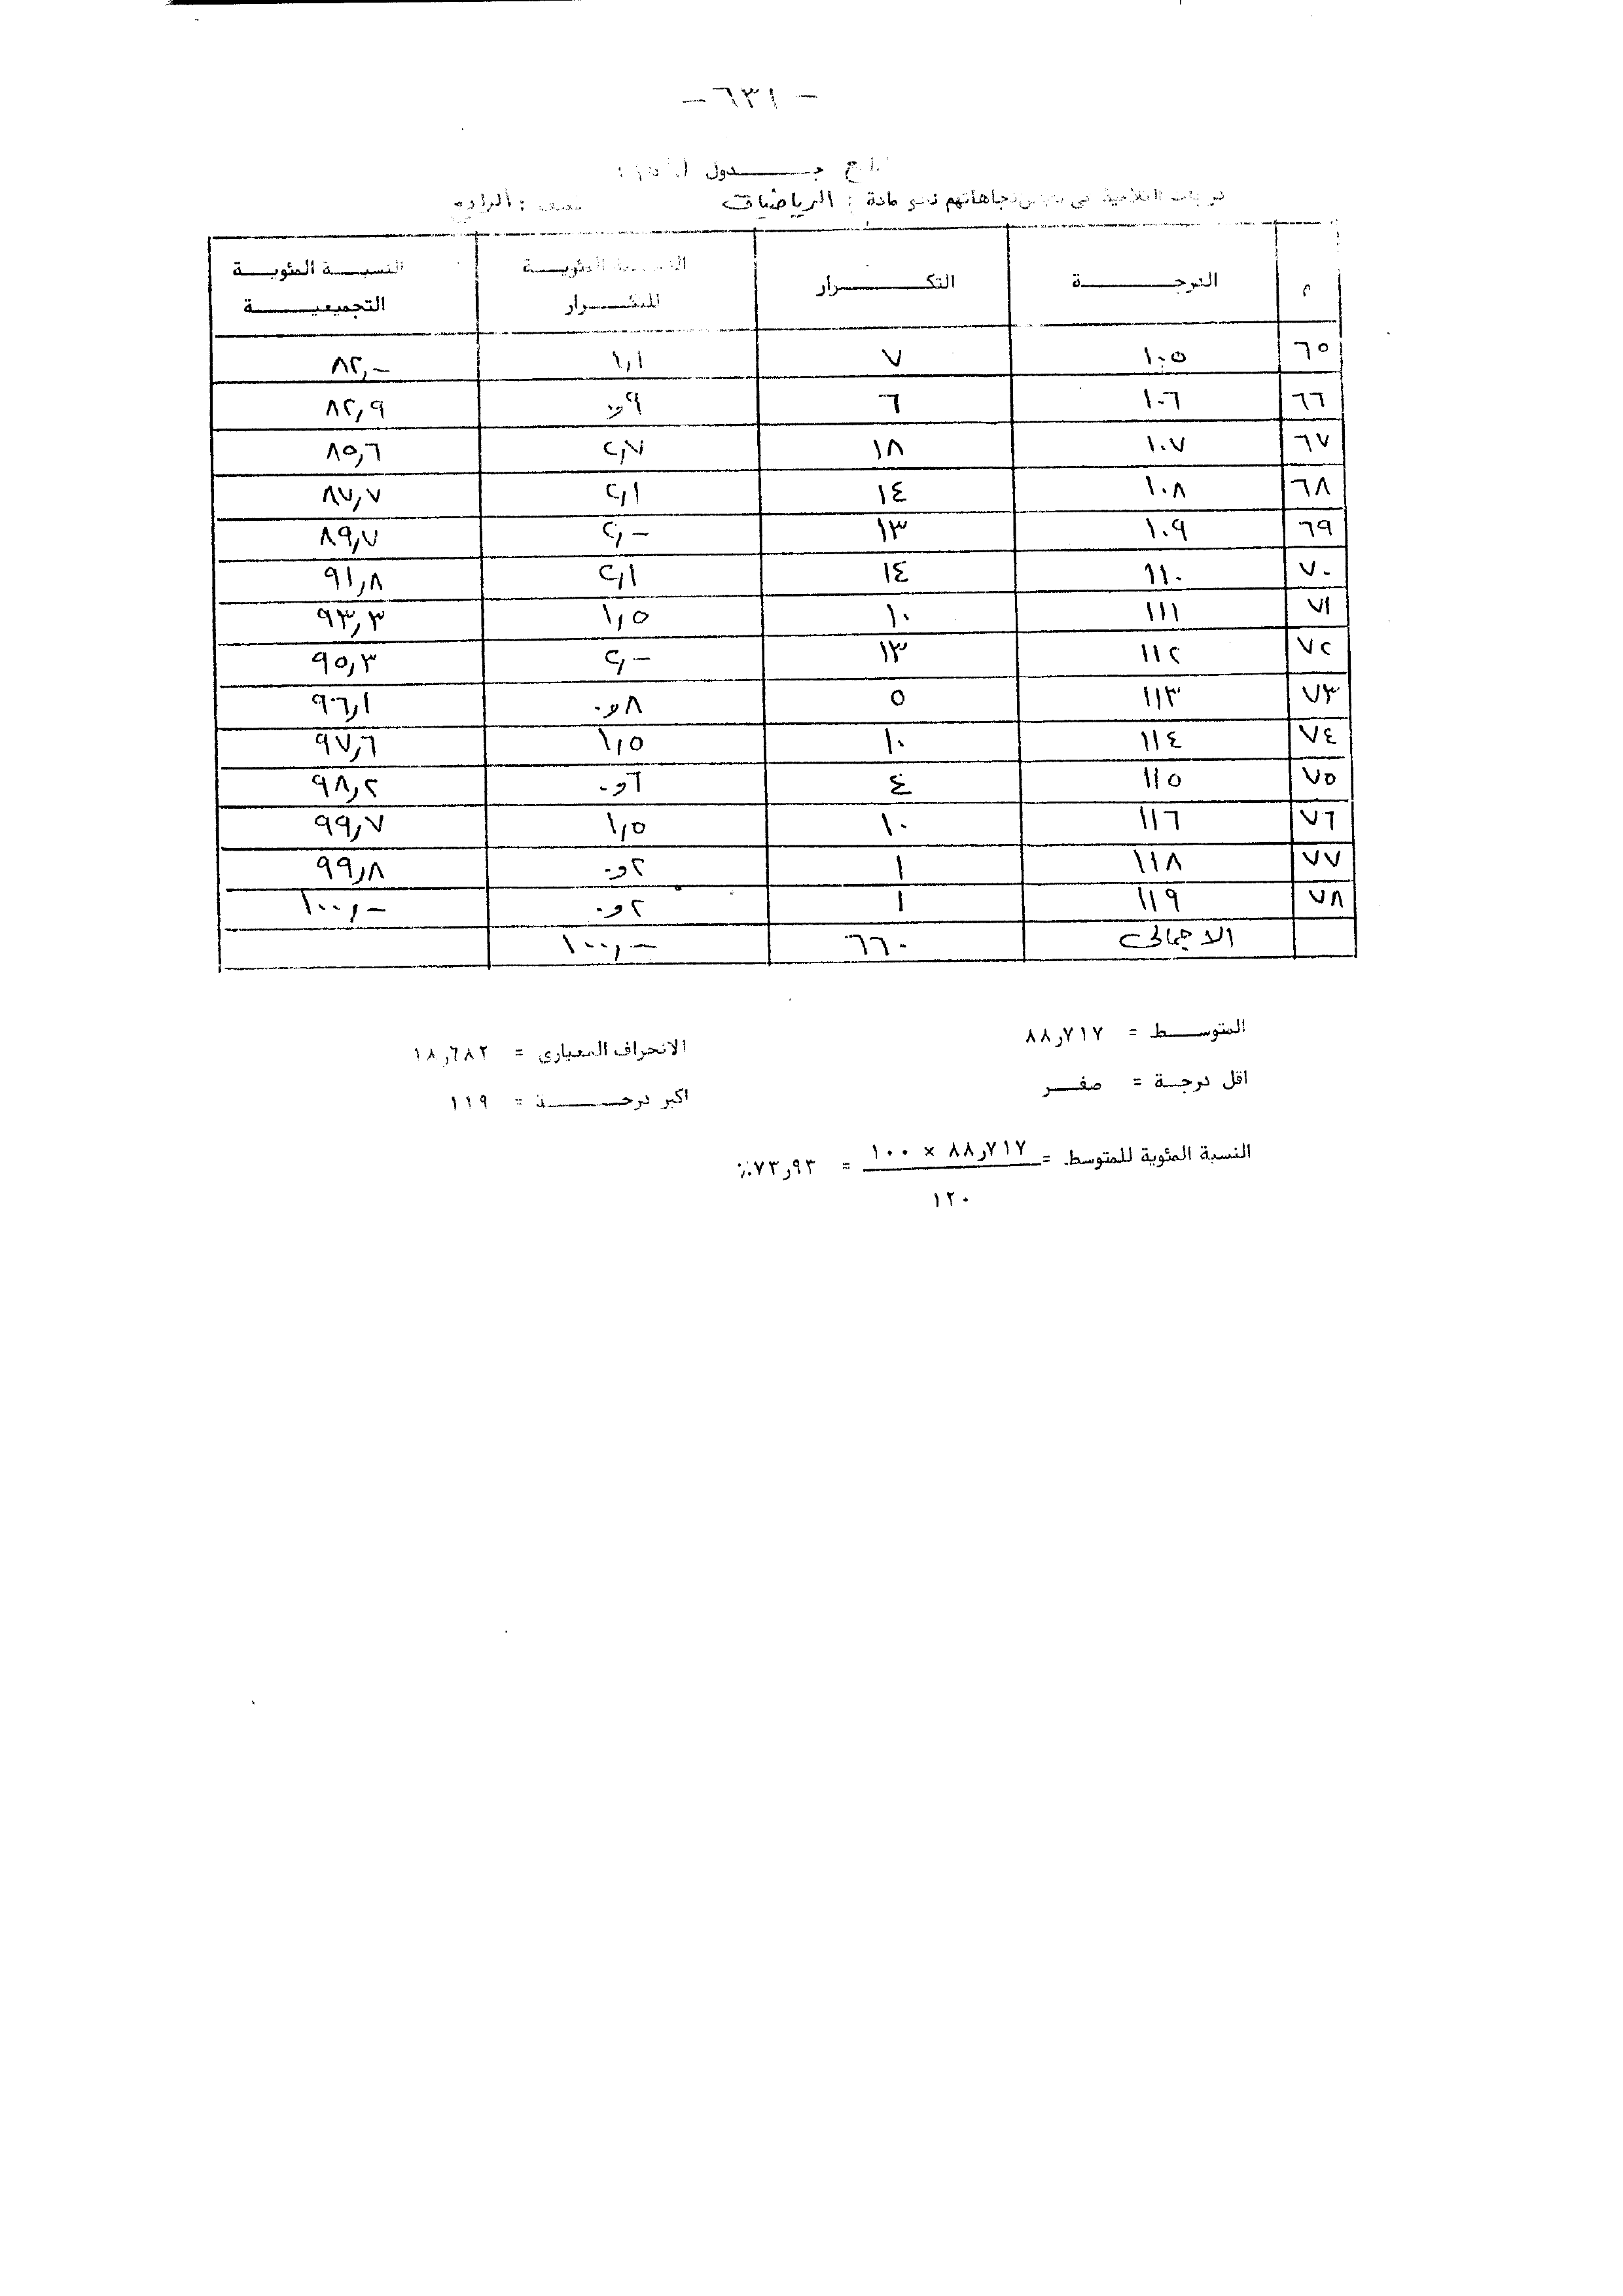 - ٦٣١ -
تابع جدول
درجات التلاميذ في اتجاهاتهم نحو مادة : الرياضيات الصف : الرابع
م الدرجة التكرار النسبة المئوية للتكرار النسبة المئوية التجميعية
٦٥ ١٠٥ ٧ ١,١ ٨٢,-
٦٦ ١٠٦ ٦ ٩و٠ ٨٢,٩
٦٧ ١٠٧ ١٨ ٢,٧ ٨٥,٦
٦٨ ١٠٨ ١٤ ٢,١ ٨٧,٧
٦٩ ١٠٩ ١٣ ٢,- ٨٩,٧
٧٠ ١١٠ ١٤ ٢,١ ٩١,٨
٧١ ١١١ ١٠ ١,٥ ٩٣,٣
٧٢ ١١٢ ١٣ ٢,- ٩٥,٣
٧٣ ١١٣ ٥ ٨و٠ ٩٦,١
٧٤ ١١٤ ١٠ ١,٥ ٩٧,٦
٧٥ ١١٥ ٤ ٦و٠ ٩٨,٢
٧٦ ١١٦ ١٠ ١,٥ ٩٩,٧
٧٧ ١١٨ ١ ٢و٠ ٩٩,٨
٧٨ ١١٩ ١ ٢و٠ ١٠٠,-
الاجمالى ٦٦٠ ١٠٠,-
المتوسط = ٧١٧ر٨٨ الانحراف المعيارى = ٦٨٢ر١٨
اقل درجة = صفر اكبر درجة = ١١٩
النسبة المئوية للمتوسط = ٧١٧ر٨٨ × ١٠٠ = ٩٣ر٧٣٪
١٢٠